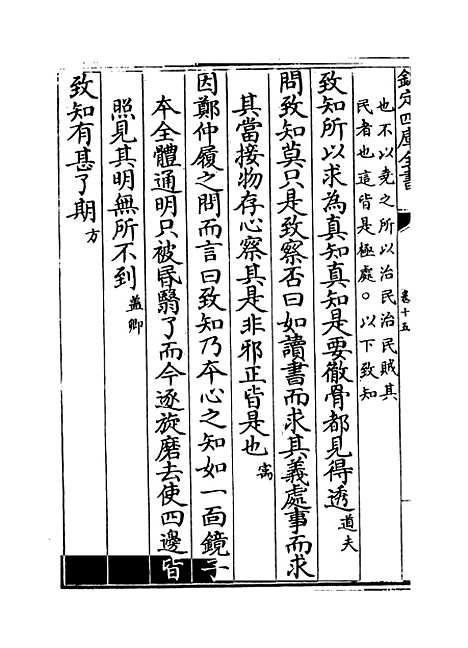 欽定四庫全書
卷十五
也不以堯之所以治民治民賊其
民者也這皆是極處○以下致知
致知所以求為真知真知是要徹骨都見得透道夫
問致知莫只是致察否曰如讀書而求其義處事而求
其當接物存心察其是非邪正皆是也寓
因鄭仲履之問而言曰致知乃本心之知如一面鏡子
本全體通明只被昏翳了而今逐旋磨去使四邊皆
照見其明無所不到蓋卿
致知有甚了期方